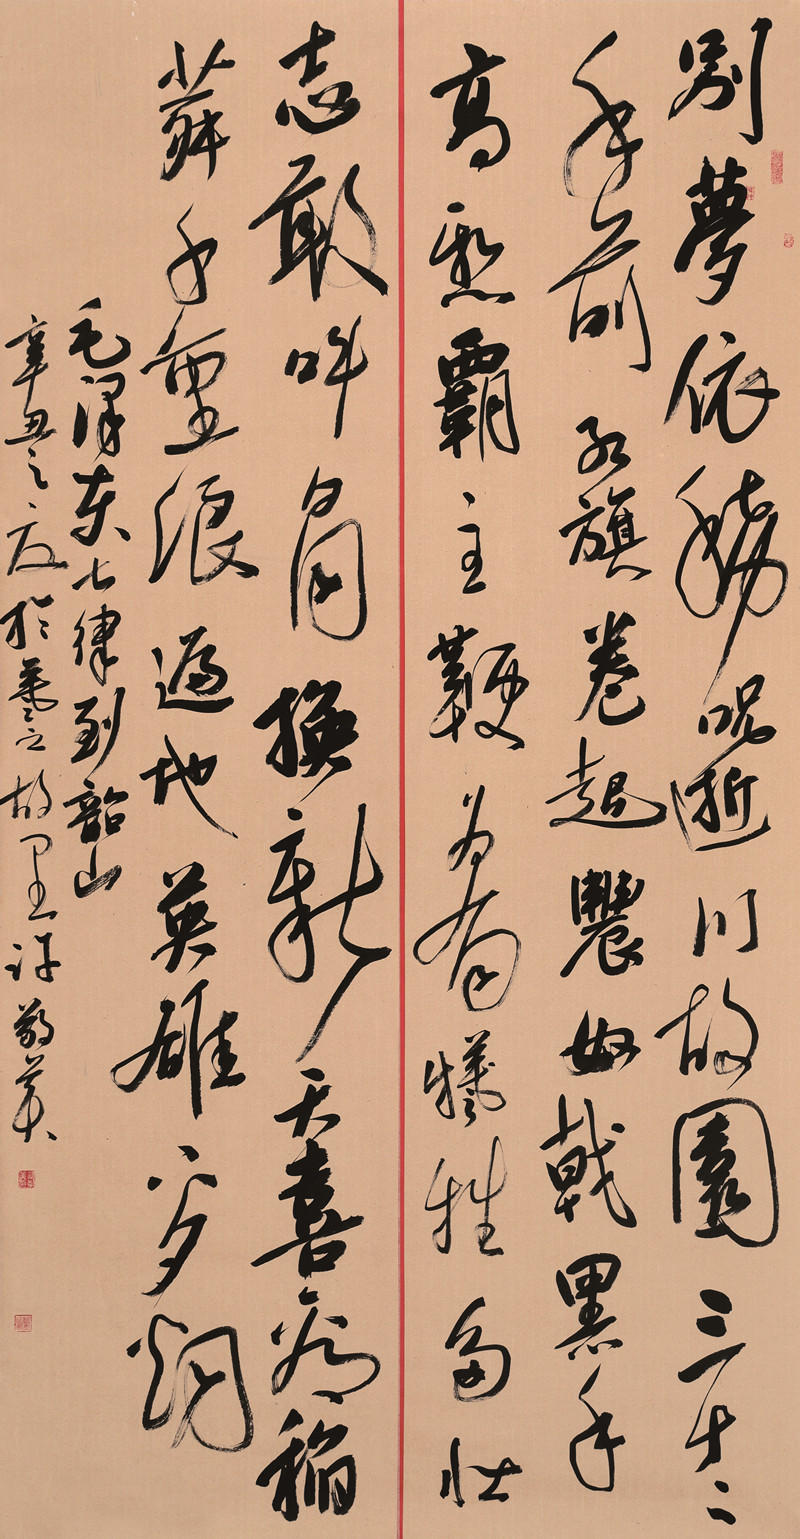 别夢依稀呪逝川故園三十二
年前红旗卷起農奴戟黑手
高悬霸主鞭为有犧牲多壮
志敢叫日月换新天喜看稻
菽千重浪遍地英雄下夕烟
毛泽东七律到韶山
辛丑之夏於羲之故里许敬